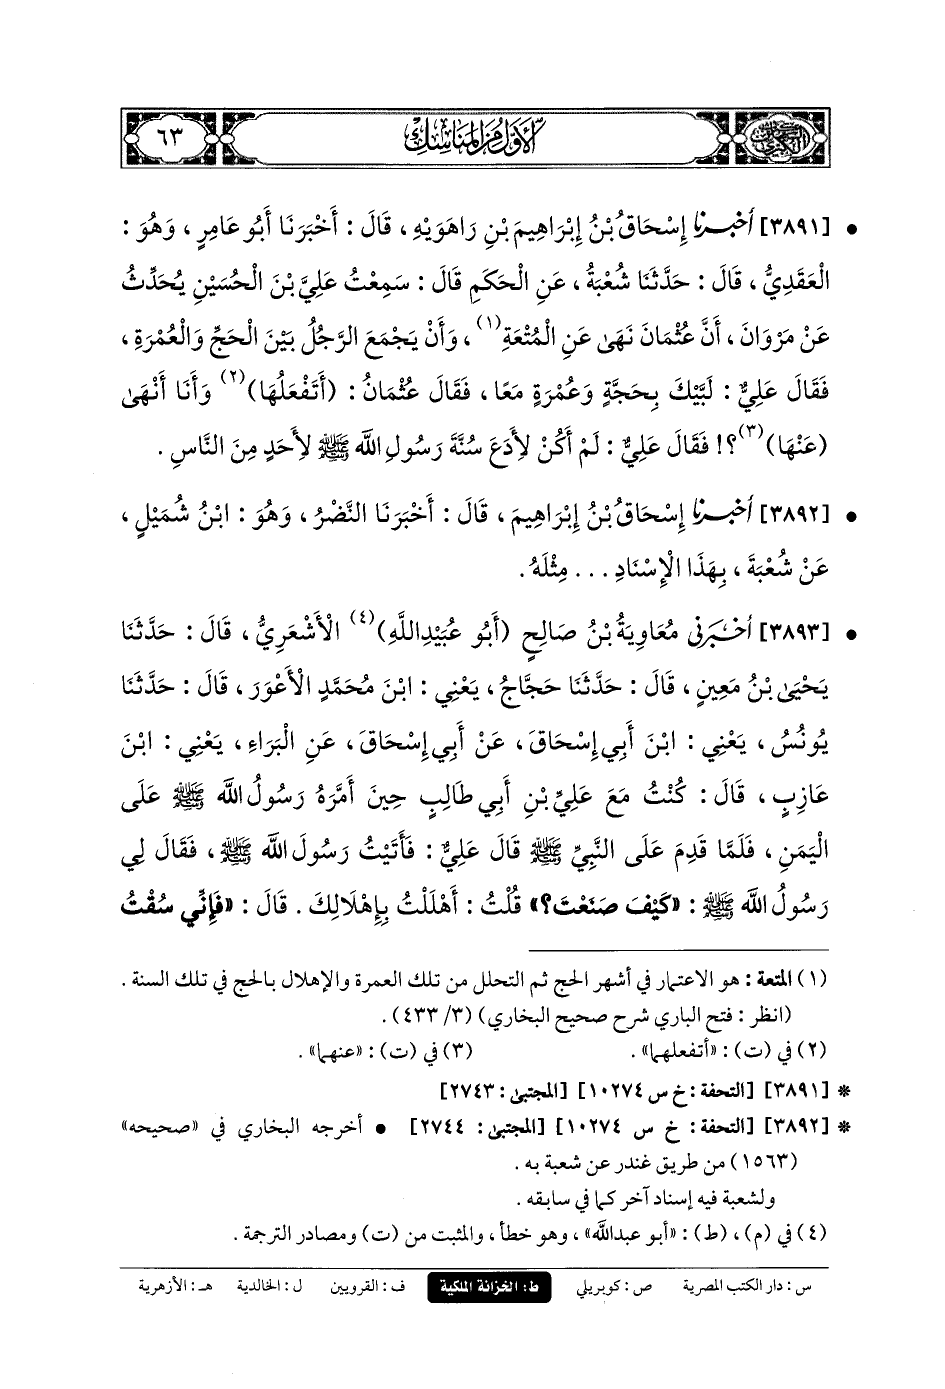 السنن الكبرى الأول من المناسك ٦٣
• [٣٨٩١] أخبرنا إِسْحَاقُ بْنُ إِبْرَاهِيمَ بْنِ رَاهَوَيْهِ ، قَالَ : أَخْبَرَنَا أَبُو عَامِرٍ ، وَهُوَ :
الْعَقَدِيُّ ، قَالَ : حَدَّثَنَا شُعْبَةُ ، عَنِ الْحَكَمِ قَالَ : سَمِعْتُ عَلِيَّ بْنَ الْحُسَيْنِ يُحَدِّثُ
عَنْ مَرْوَانَ ، أَنَّ عُثْمَانَ نَهَى عَنِ الْمُتْعَةِ (١) ، وَأَنْ يَجْمَعَ الرَّجُلُ بَيْنَ الْحَجِّ وَالْعُمْرَةِ ،
فَقَالَ عَلِيٌّ : لَبَّيْكَ بِحَجَّةٍ وَعُمْرَةٍ مَعًا ، فَقَالَ عُثْمَانُ : (أَتَفْعَلُهَا) (٢) وَأَنَا أَنْهَى
(عَنْهَا) (٣) ؟! فَقَالَ عَلِيٌّ : لَمْ أَكُنْ لِأَدَعَ سُنَّةَ رَسُولِ اللَّه ﷺ لِأَحَدٍ مِنَ النَّاسِ .
• [٣٨٩٢] أخبرنا إِسْحَاقُ بْنُ إِبْرَاهِيمَ ، قَالَ : أَخْبَرَنَا النَّضْرُ ، وَهُوَ : ابْنُ شُمَيْلٍ ،
عَنْ شُعْبَةَ ، بِهَذَا الْإِسْنَادِ . . . مِثْلَهُ .
• [٣٨٩٣] أخبرني مُعَاوِيَةُ بْنُ صَالِحٍ (أَبُو عُبَيْدِاللَّهِ) (٤) الْأَشْعَرِيُّ ، قَالَ : حَدَّثَنَا
يَحْيَى بْنُ مَعِينٍ ، قَالَ : حَدَّثَنَا حَجَّاجُ ، يَعْنِي : ابْنَ مُحَمَّدٍ الْأَعْوَرَ ، قَالَ : حَدَّثَنَا
يُونُسُ ، يَعْنِي : ابْنَ أَبِي إِسْحَاقَ ، عَنْ أَبِي إِسْحَاقَ ، عَنِ الْبَرَاءِ ، يَعْنِي : ابْنَ
عَازِبٍ ، قَالَ : كُنْتُ مَعَ عَلِيِّ بْنِ أَبِي طَالِبٍ حِينَ أَمَّرَهُ رَسُولُ اللَّه ﷺ عَلَى
الْيَمَنِ ، فَلَمَّا قَدِمَ عَلَى النَّبِيِّ ﷺ قَالَ عَلِيٌّ : فَأَتَيْتُ رَسُولَ اللَّه ﷺ ، فَقَالَ لِي
رَسُولُ اللَّه ﷺ : «كَيْفَ صَنَعْتَ؟» قُلْتُ : أَهْلَلْتُ بِإِهْلَالِكَ . قَالَ : «فَإِنِّي سُقْتُ
(١) المتعة : هو الاعتمار في أشهر الحج ثم التحلل من تلك العمرة والإهلال بالحج في تلك السنة .
(انظر : فتح الباري شرح صحيح البخاري) (٣/ ٤٣٣) .
(٢) في (ت) : «أتفعلهما» . (٣) في (ت) : «عنهما» .
* [٣٨٩١] [التحفة : خ س ١٠٢٧٤] [المجتبى : ٢٧٤٣]
* [٣٨٩٢] [التحفة : خ س ١٠٢٧٤] [المجتبى : ٢٧٤٤] • أخرجه البخاري في «صحيحه»
(١٥٦٣) من طريق غندر عن شعبة به .
ولشعبة فيه إسناد آخر كما في سابقه .
(٤) في (م) ، (ط) : «أبو عبدالله» ، وهو خطأ ، والمثبت من (ت) ومصادر الترجمة .
س : دار الكتب المصرية ص : كوبريلي ط : الخزانة الملكية ف : القرويين ل : الخالدية هـ : الأزهرية